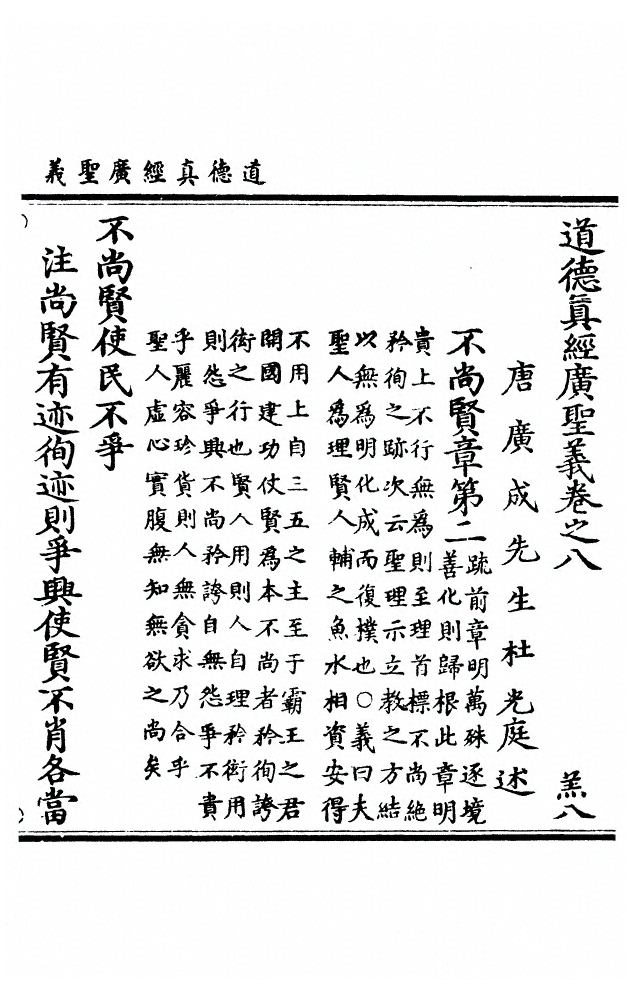 道德真經廣聖義
道德眞經廣聖義卷之八　羔八
唐廣成先生杜光庭述
不尚賢章第二
疏前章明萬殊逐境
善化則歸根此章明
貴上不行無爲則至理首標不尚絕
矜徇之跡次云聖理示立教之方結
以無爲明化成而復樸也○義曰夫
聖人爲理賢人輔之魚水相資安得
不用上自三五之主至于霸王之君
開國建功仗賢爲本不尚者矜徇誇
衒之行也賢人用則人自理矜衒用
則怨爭興不尚矜誇自無怨爭不貴
乎麗容珍貨則人無貪求乃合乎
聖人虛心實腹無知無欲之尚矣
不尚賢使民不爭
注尚賢有迹徇迹則爭興使賢不肖各當